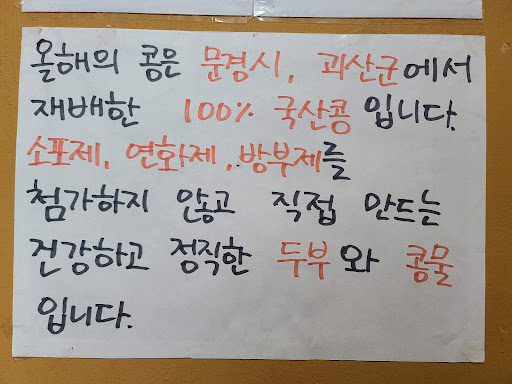 올해의 콩은 문경시, 괴산군에서
재배한 100% 국산콩 입니다.
소포제, 연화제, 방부제를
첨가하지 않고 직접 만드는
건강하고 정직한 두부와 콩물
입니다.